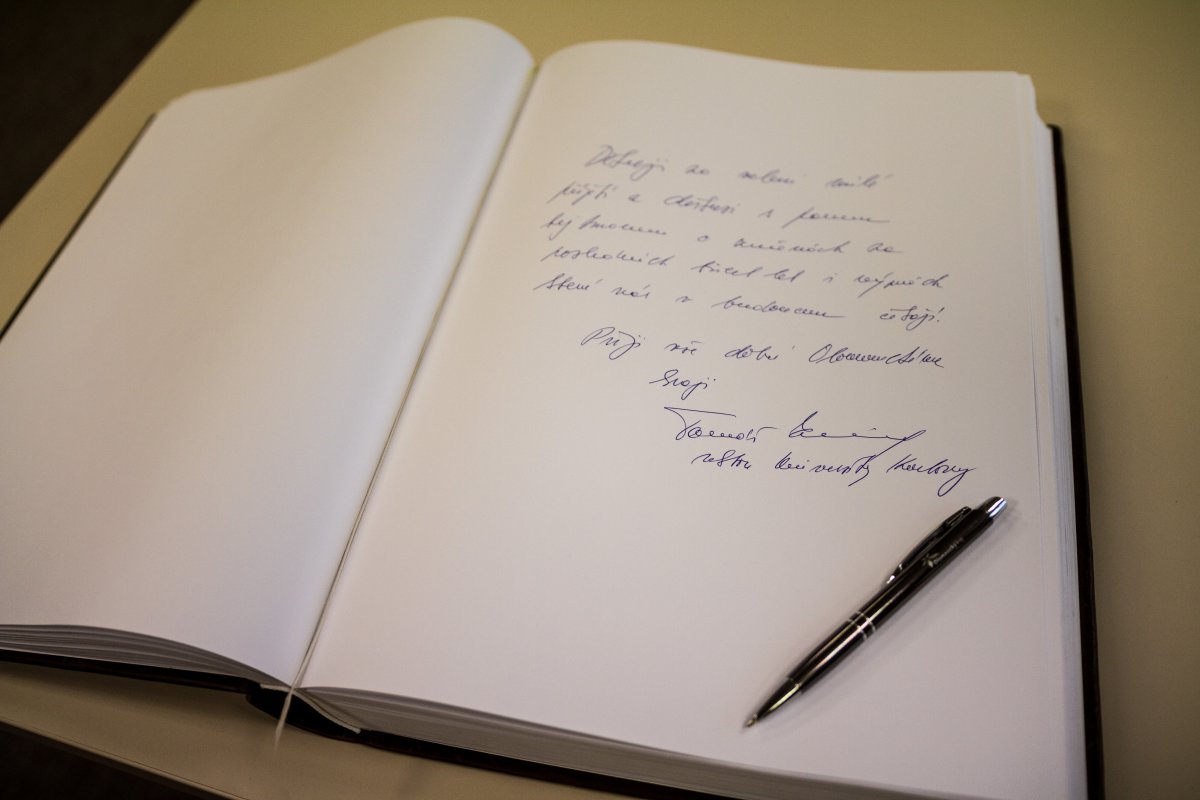 Děkuji za velmi milé
přijetí a diskusi s panem
hejtmanem o změnách za
posledních třicet let i výzvách
které nás v budoucnu čekají.
Přeji vše dobré Olomouckému
kraji
Tomáš
rektor Univerzity Karlovy